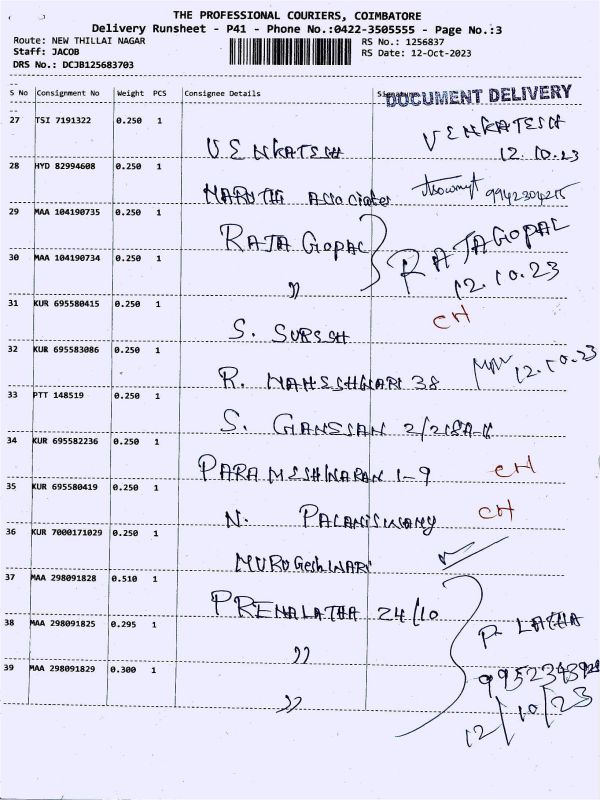 THE PROFESSIONAL COURIERS, COIMBATORE
Delivery Runsheet - P41 - Phone No.:0422-3505555 - Page No.:3
Route: NEW THILLAI NAGAR RS No.: 1256837
Staff: JACOB RS Date: 12-Oct-2023
DRS No.: DCJB125683703
S No Consignment No Weight PCS Consignee Details Signature
DOCUMENT DELIVERY
27 TSI 7191322 0.250 1 VENKATESH VENKATESH
12.10.23
28 HYD 82994608 0.250 1 MARUTHI Associates 9942304215
29 MAA 104190735 0.250 1 RAJA GOPAL RAJAGOPAL
30 MAA 104190734 0.250 1 " 12.10.23
31 KUR 695580415 0.250 1 S. SURESH CH
32 KUR 695583086 0.250 1 R. MAHESHWARI 38 12.10.23
33 PTT 148519 0.250 1 S. GANESAN
34 KUR 695582236 0.250 1 PARAMESHWARAN 1-9 CH
35 KUR 695580419 0.250 1 N. PALANISWAMY CH
36 KUR 7000171029 0.250 1 MURUGESHWARI
37 MAA 298091828 0.510 1 PREMALATHA 24/10
38 MAA 298091825 0.295 1 " P. LATHA
39 MAA 298091829 0.300 1 "
12/10/23